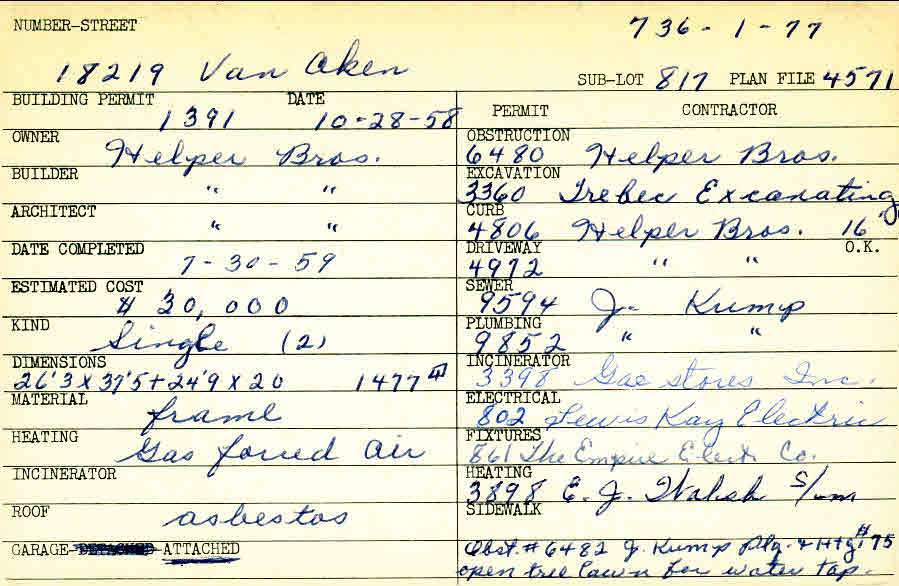 NUMBER-STREET 736-1-77
18219 Van Aken SUB-LOT 817 PLAN FILE 4571
BUILDING PERMIT DATE
1391 10-28-58
OWNER
Helper Bros.
BUILDER
" "
ARCHITECT
" "
DATE COMPLETED
7-30-59
ESTIMATED COST
$ 30,000
KIND
Single (2)
DIMENSIONS
26'3 x 37'5 + 24'9 x 20 1477
MATERIAL
frame
HEATING
Gas forced air
INCINERATOR
ROOF
asbestos
GARAGE-DETACHED-ATTACHED
PERMIT CONTRACTOR
OBSTRUCTION
6480 Helper Bros.
EXCAVATION
3360 Trebec Excavating
CURB
4806 Helper Bros. 16'
DRIVEWAY O.K.
4972 " "
SEWER
9594 J. Kump
PLUMBING
9852 " "
INCINERATOR
3398 Gas Stores Inc.
ELECTRICAL
802 Lewis Kay Electric
FIXTURES
861 The Empire Elect. Co.
HEATING
3898 E. J. Walsh S/um
SIDEWALK
Obst. # 6482 J. Kump Plg. & Htg. #175
open tree lawn for water tap.